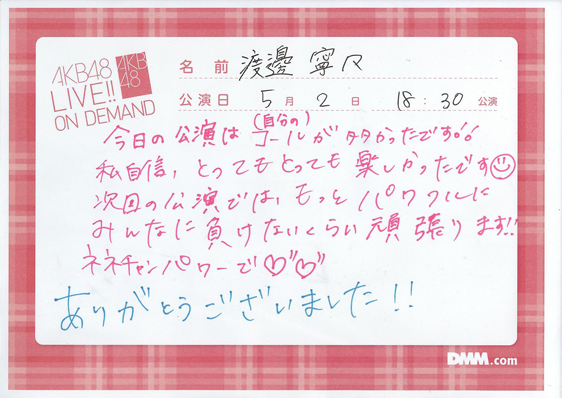 AKB48
LIVE!!
ON DEMAND
AKB
48
名前 渡邊 寧々
公演日 5月 2日 18:30 公演
(自分の)
今日の公演は コールが多かったです!!
私自信、とってもとっても楽しかったです
次回の公演では、もっとパワフルに
みんなに負けないくらい頑張ります!!
ネネチャンパワーで♡"♡"
ありがとうございました!!
DMM.com